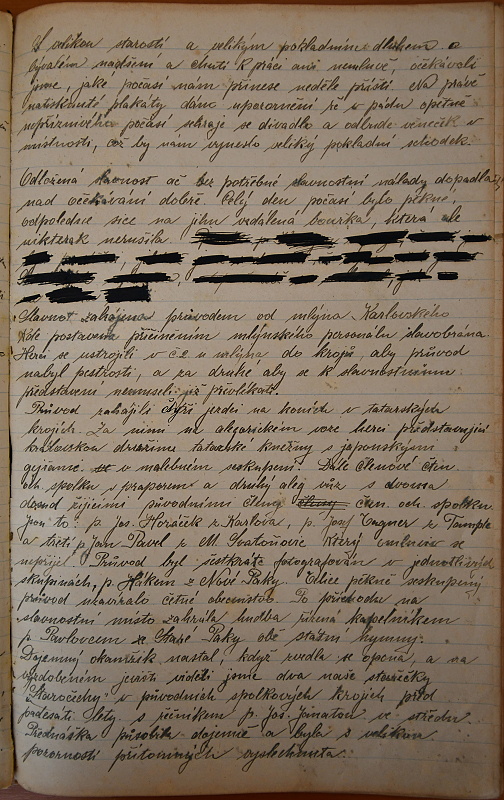 S velikou starostí a velikým pokladním dluhem o
bývalém nadšení a chuti k práci ani nemluvě, očekávali
jsme, jaké počasí nám přinese neděle příští. Na právě
natisknuté plakáty dáno upozornění že v pádu opětně
nepříznivého počasí sehraje se divadlo a odbude věneček v
místnosti, což by nám vyneslo veliký pokladní schodek.
Odložená slavnost ač bez potřebné slavnostní nálady dopadla
nad očekávání dobře. Celý den počasí bylo pěkné,
odpoledne sice na jihu vzdálená bouřka, která ale
nikterak nerušila.
Slavnost zahájena průvodem od mlýna Karlovského
kde postavena přičiněním mlýnského personálu slavobrána.
Herci se ustrojili v č. 2 u mlýna do krojů, aby průvod
nabyl pestrosti, a za druhé aby se k slavnostnímu
představení nemuseli již převlékat.
Průvod zahájili čtyři jezdci na koních v tatarských
krojích. Za nimi na alegorickém voze herci představující
královskou družinu tatarské kněžny s japonskými
gejšami v malebném seskupení. Dále členové čten.
och. spolku s praporem a druhý aleg. vůz s dvoma
dosud žijícími původními členy čten. och. spolku.
Jsou to: p. Jos. Horáček z Karlova, p. Josef Wagner z Temple
a třetí p. Jan Pavel z M. Svatoňovic který omluviv se
nepřijel. Průvod byl šestkráte fotografován v jednotlivých
skupinách, p. Hákem z Nové Paky. Velice pěkně seskupený
průvod uzavíralo četné obecenstvo. Po příchodu na
slavnostní místo zahrála hudba řízená kapelníkem
p. Pavlovcem ze Staré Paky obě státní hymny.
Dojemný okamžik nastal, když zvedla se opona, a na
vyzdobeném jevišti viděli jsme dva naše stařečky
"Staročechy" v původních spolkových krojích před
padesáti lety s řečníkem p. Jos. ve středu.
Přednáška působila dojemně a byla s velikou
pozorností přítomných vyslechnuta.